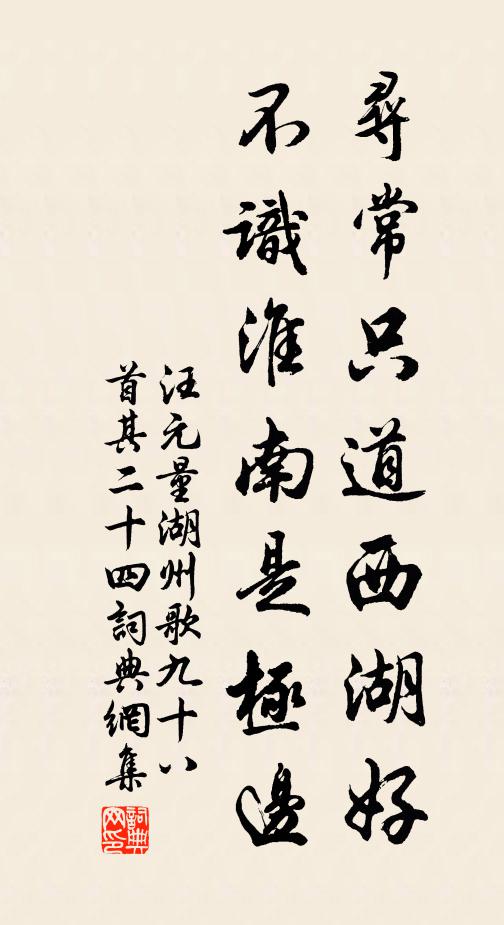 尋常只道西湖好
不識淮南是極邊
汪元量湖州歌九十八
首其二十四詞典網集
詞典
网印